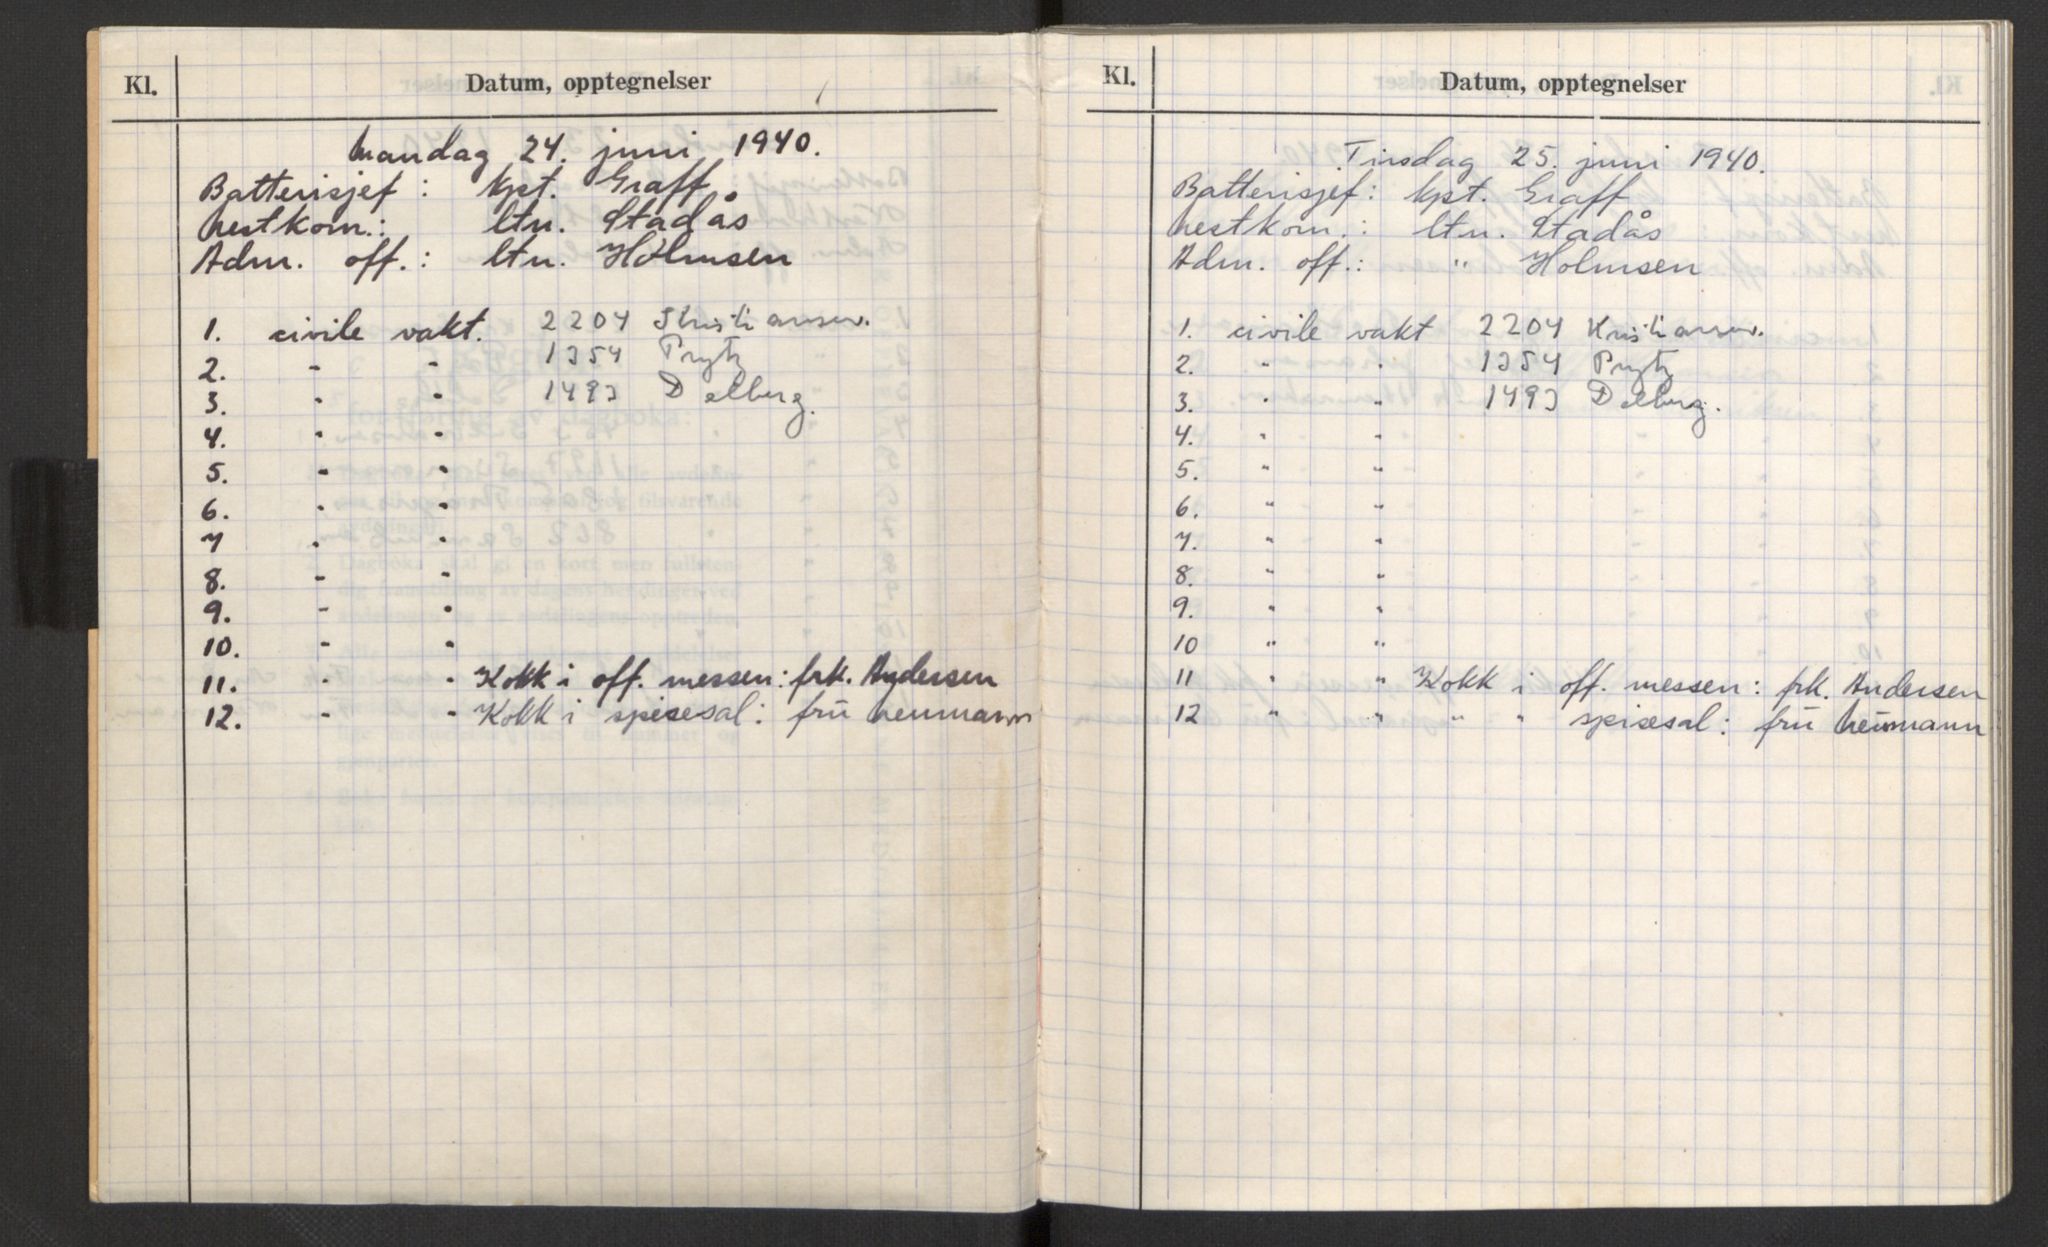 Kl. Datum, opptegnelser
Mandag 24. juni 1940.
Batterisjef: kpt. Graff
Nestkom.: ltn. Stadås
Adm. off.: ltn. Holmsen
1. civile vakt. 2204 Kristiansen.
2. " " 1354 Prytz
3. " " 1493 Dalberg.
4. " "
5. " "
6. " "
7 " "
8. " "
9. " "
10. " "
11. " " Kokk i off. messen: frk. Andersen
12. " " Kokk i spisesal: frü Neumann
Kl. Datum, opptegnelser
Tirsdag 25. juni 1940.
Batterisjef: kpt. Graff
Nestkom.: ltn. Stadås
Adm. off.: " Holmsen
1. civile vakt 2204 Kristiansen.
2. " " 1354 Prytz
3. " " 1493 Dalberg.
4. " "
5. " "
6. " "
7. " "
8. " "
9. " "
10 " "
11 " " Kokk i off. messen: frk. Andersen
12 " " " " spisesal: frü Neümann